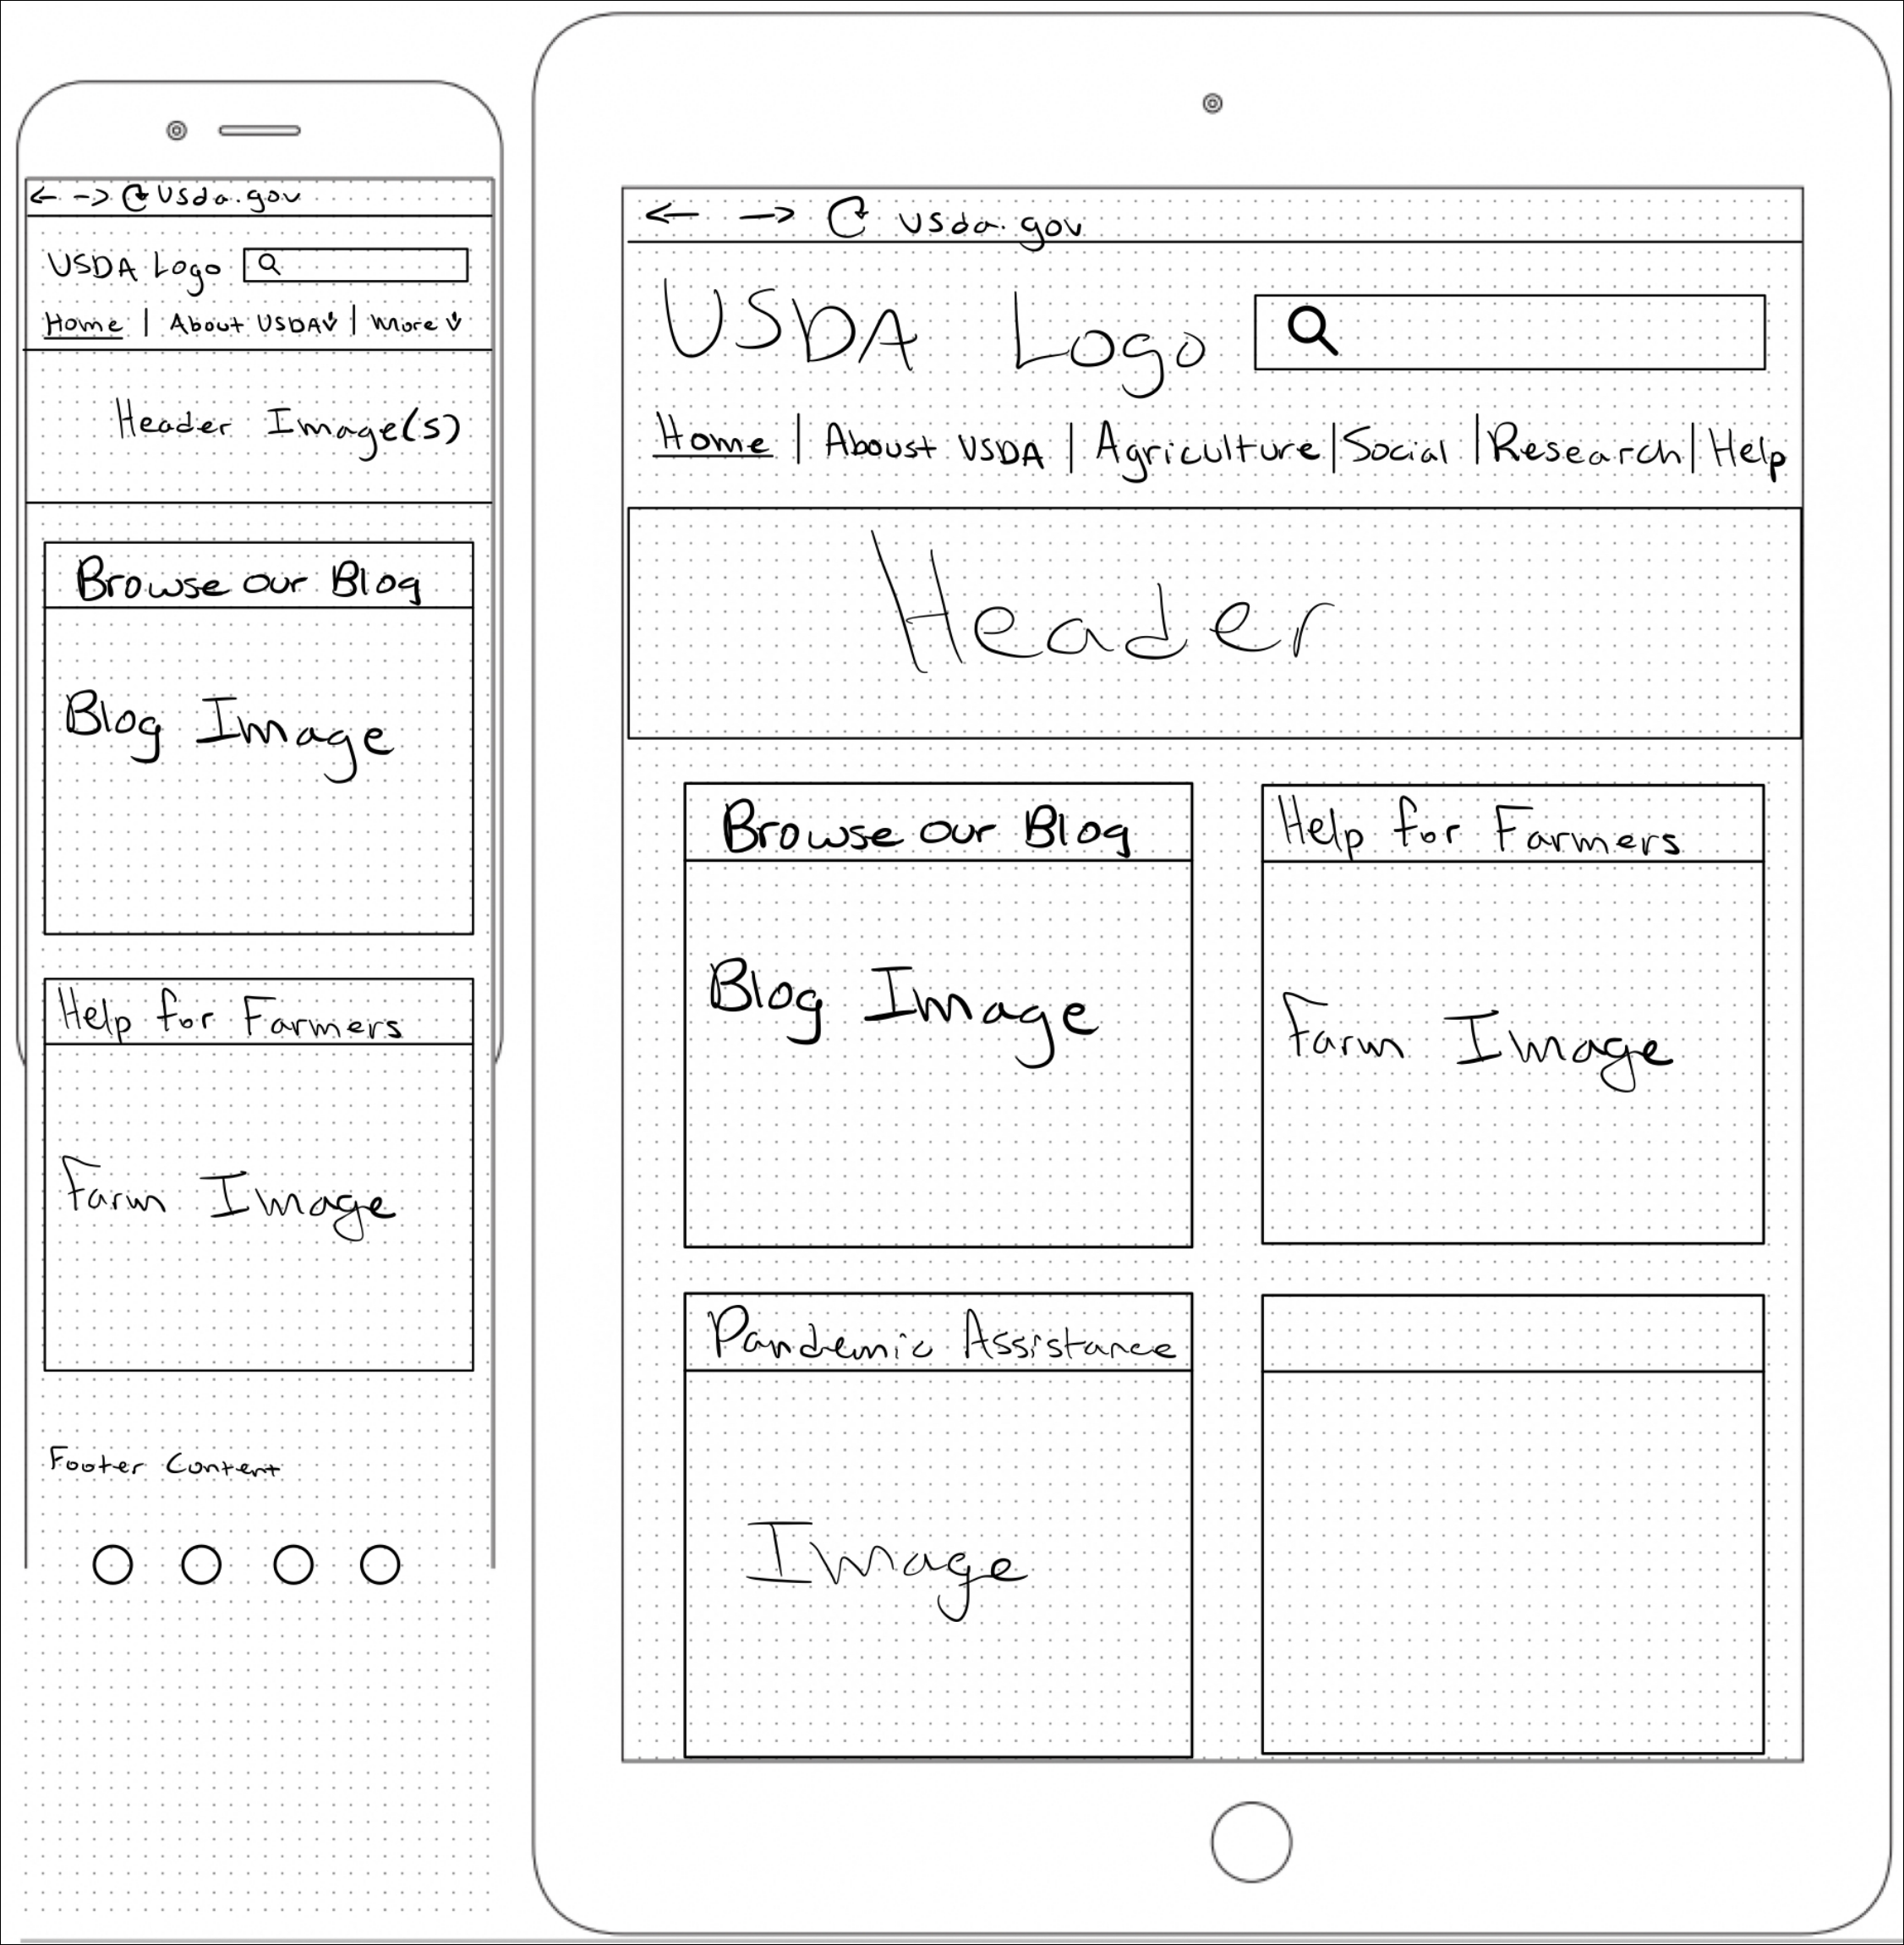 usda.gov
USDA Logo
Home | About USDA | More
Header Image(s)
Browse our Blog
Blog Image
Help for Farmers
Farm Image
Footer Content
usda.gov
USDA Logo
Home | Aboust USDA | Agriculture | Social | Research | Help
Header
Browse our Blog
Blog Image
Help for Farmers
Farm Image
Pandemic Assistance
Image